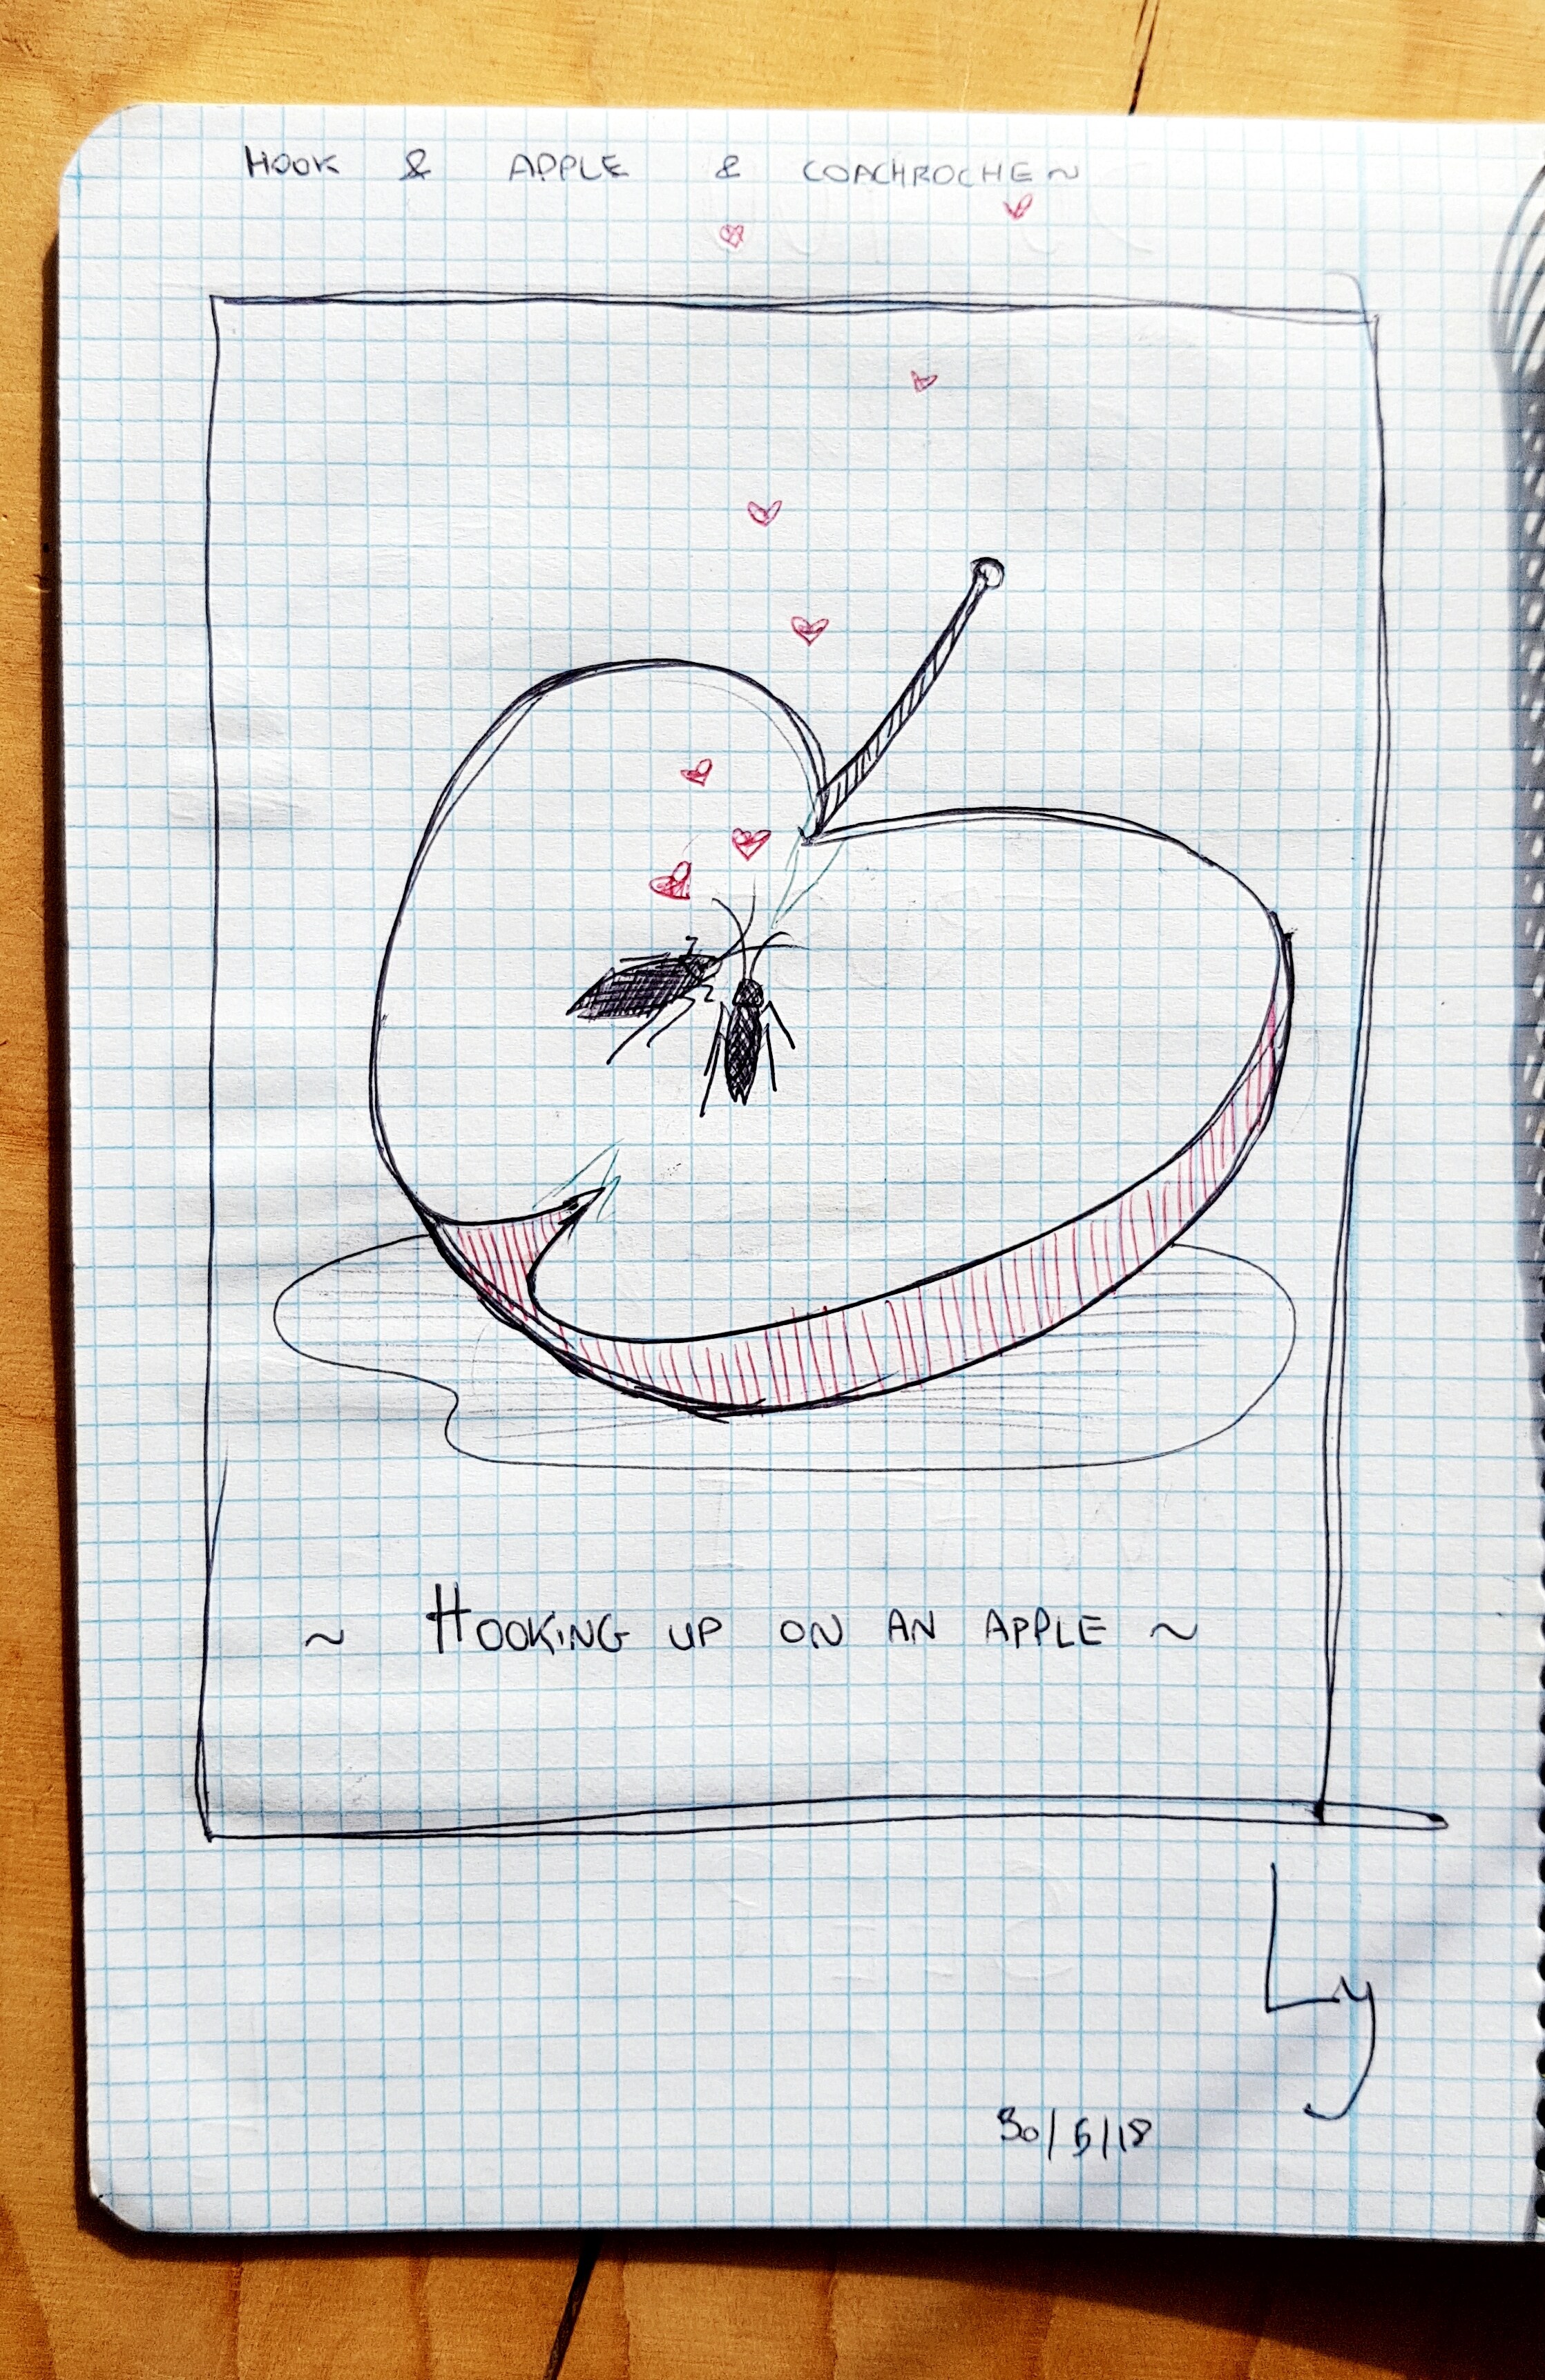 HOOK & APPLE & COACHROCHE ~
~ HOOKING UP ON AN APPLE ~
Ly
30/5/18